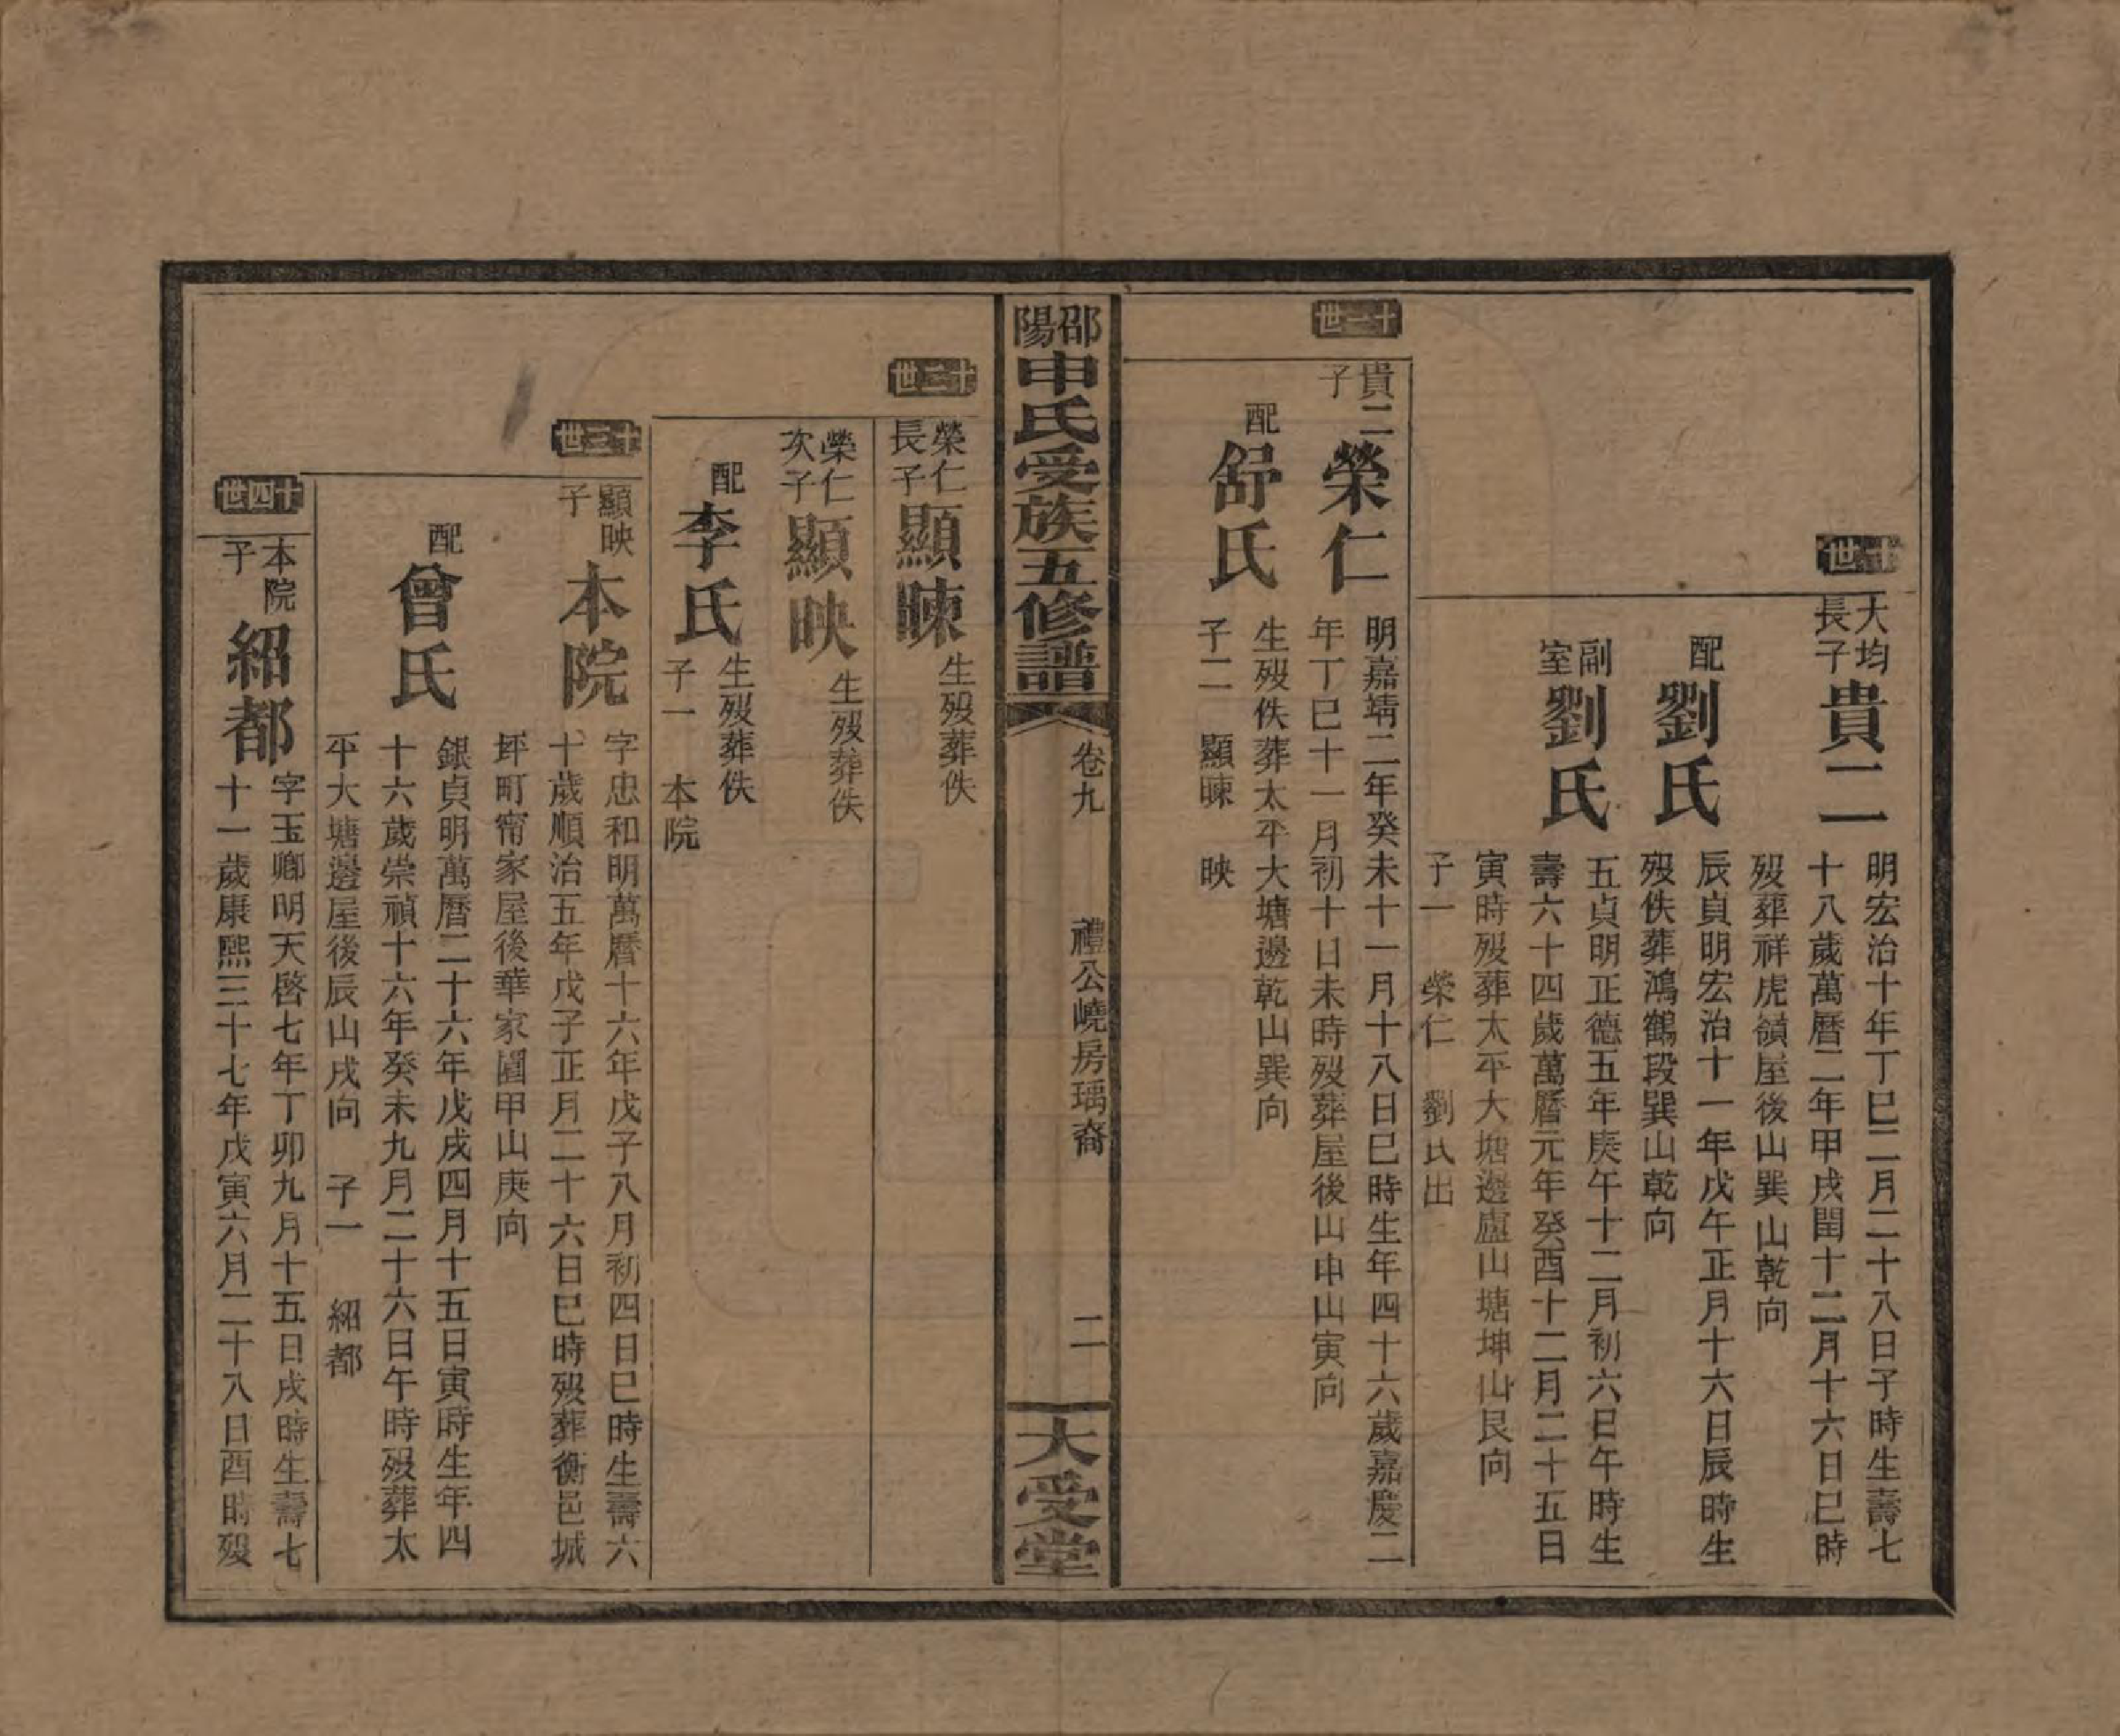 十世
大均
長子
貴二
明宏治十年丁巳二月二十八日子時生壽七
十八歲萬曆二年甲戌閏十二月十六日巳時
歿葬祥虎領屋後山巽山乾向
配
劉氏
辰貞明宏治十一年戊午正月十六日辰時生
歿佚葬鴻鶴段巽山乾向
副
室
劉氏
五貞明正德五年庚午十二月初六日午時生
壽六十四歲萬曆元年癸酉十二月二十五日
寅時歿葬太平大塘邊廬山塘坤山艮向
子一　榮仁　劉氏出
十一世
貴二
子
榮仁
明嘉靖二年癸未十一月十八日巳時生年四十六歲嘉慶二
年丁巳十一月初十日未時歿葬屋後山申山寅向
配
舒氏
生歿佚葬太平大塘邊乾山巽向
子二　顯暕　映
邵陽申氏受族五修譜
卷九
禮公嶢房瑀裔
二
大受堂
十二世
榮仁
長子
顯暕
生歿葬佚
榮仁
次子
顯映
生歿葬佚
配
李氏
生歿葬佚
子一　本院
十三世
顯映
子
本院
字忠和明萬曆十六年戊子八月初四日巳時生壽六
十歲順治五年戊子正月二十六日巳時歿葬衡邑城
坪町甯家屋後華家園甲山庚向
配
曾氏
銀貞明萬曆二十六年戊戌四月十五日寅時生年四
十六歲崇禎十六年癸未九月二十六日午時歿葬太
平大塘邊屋後辰山戌向　子一　紹都
十四世
本院
子
紹都
字玉卿明天啓七年丁卯九月十五日戌時生壽七
十一歲康熙三十七年戊寅六月二十八日酉時歿